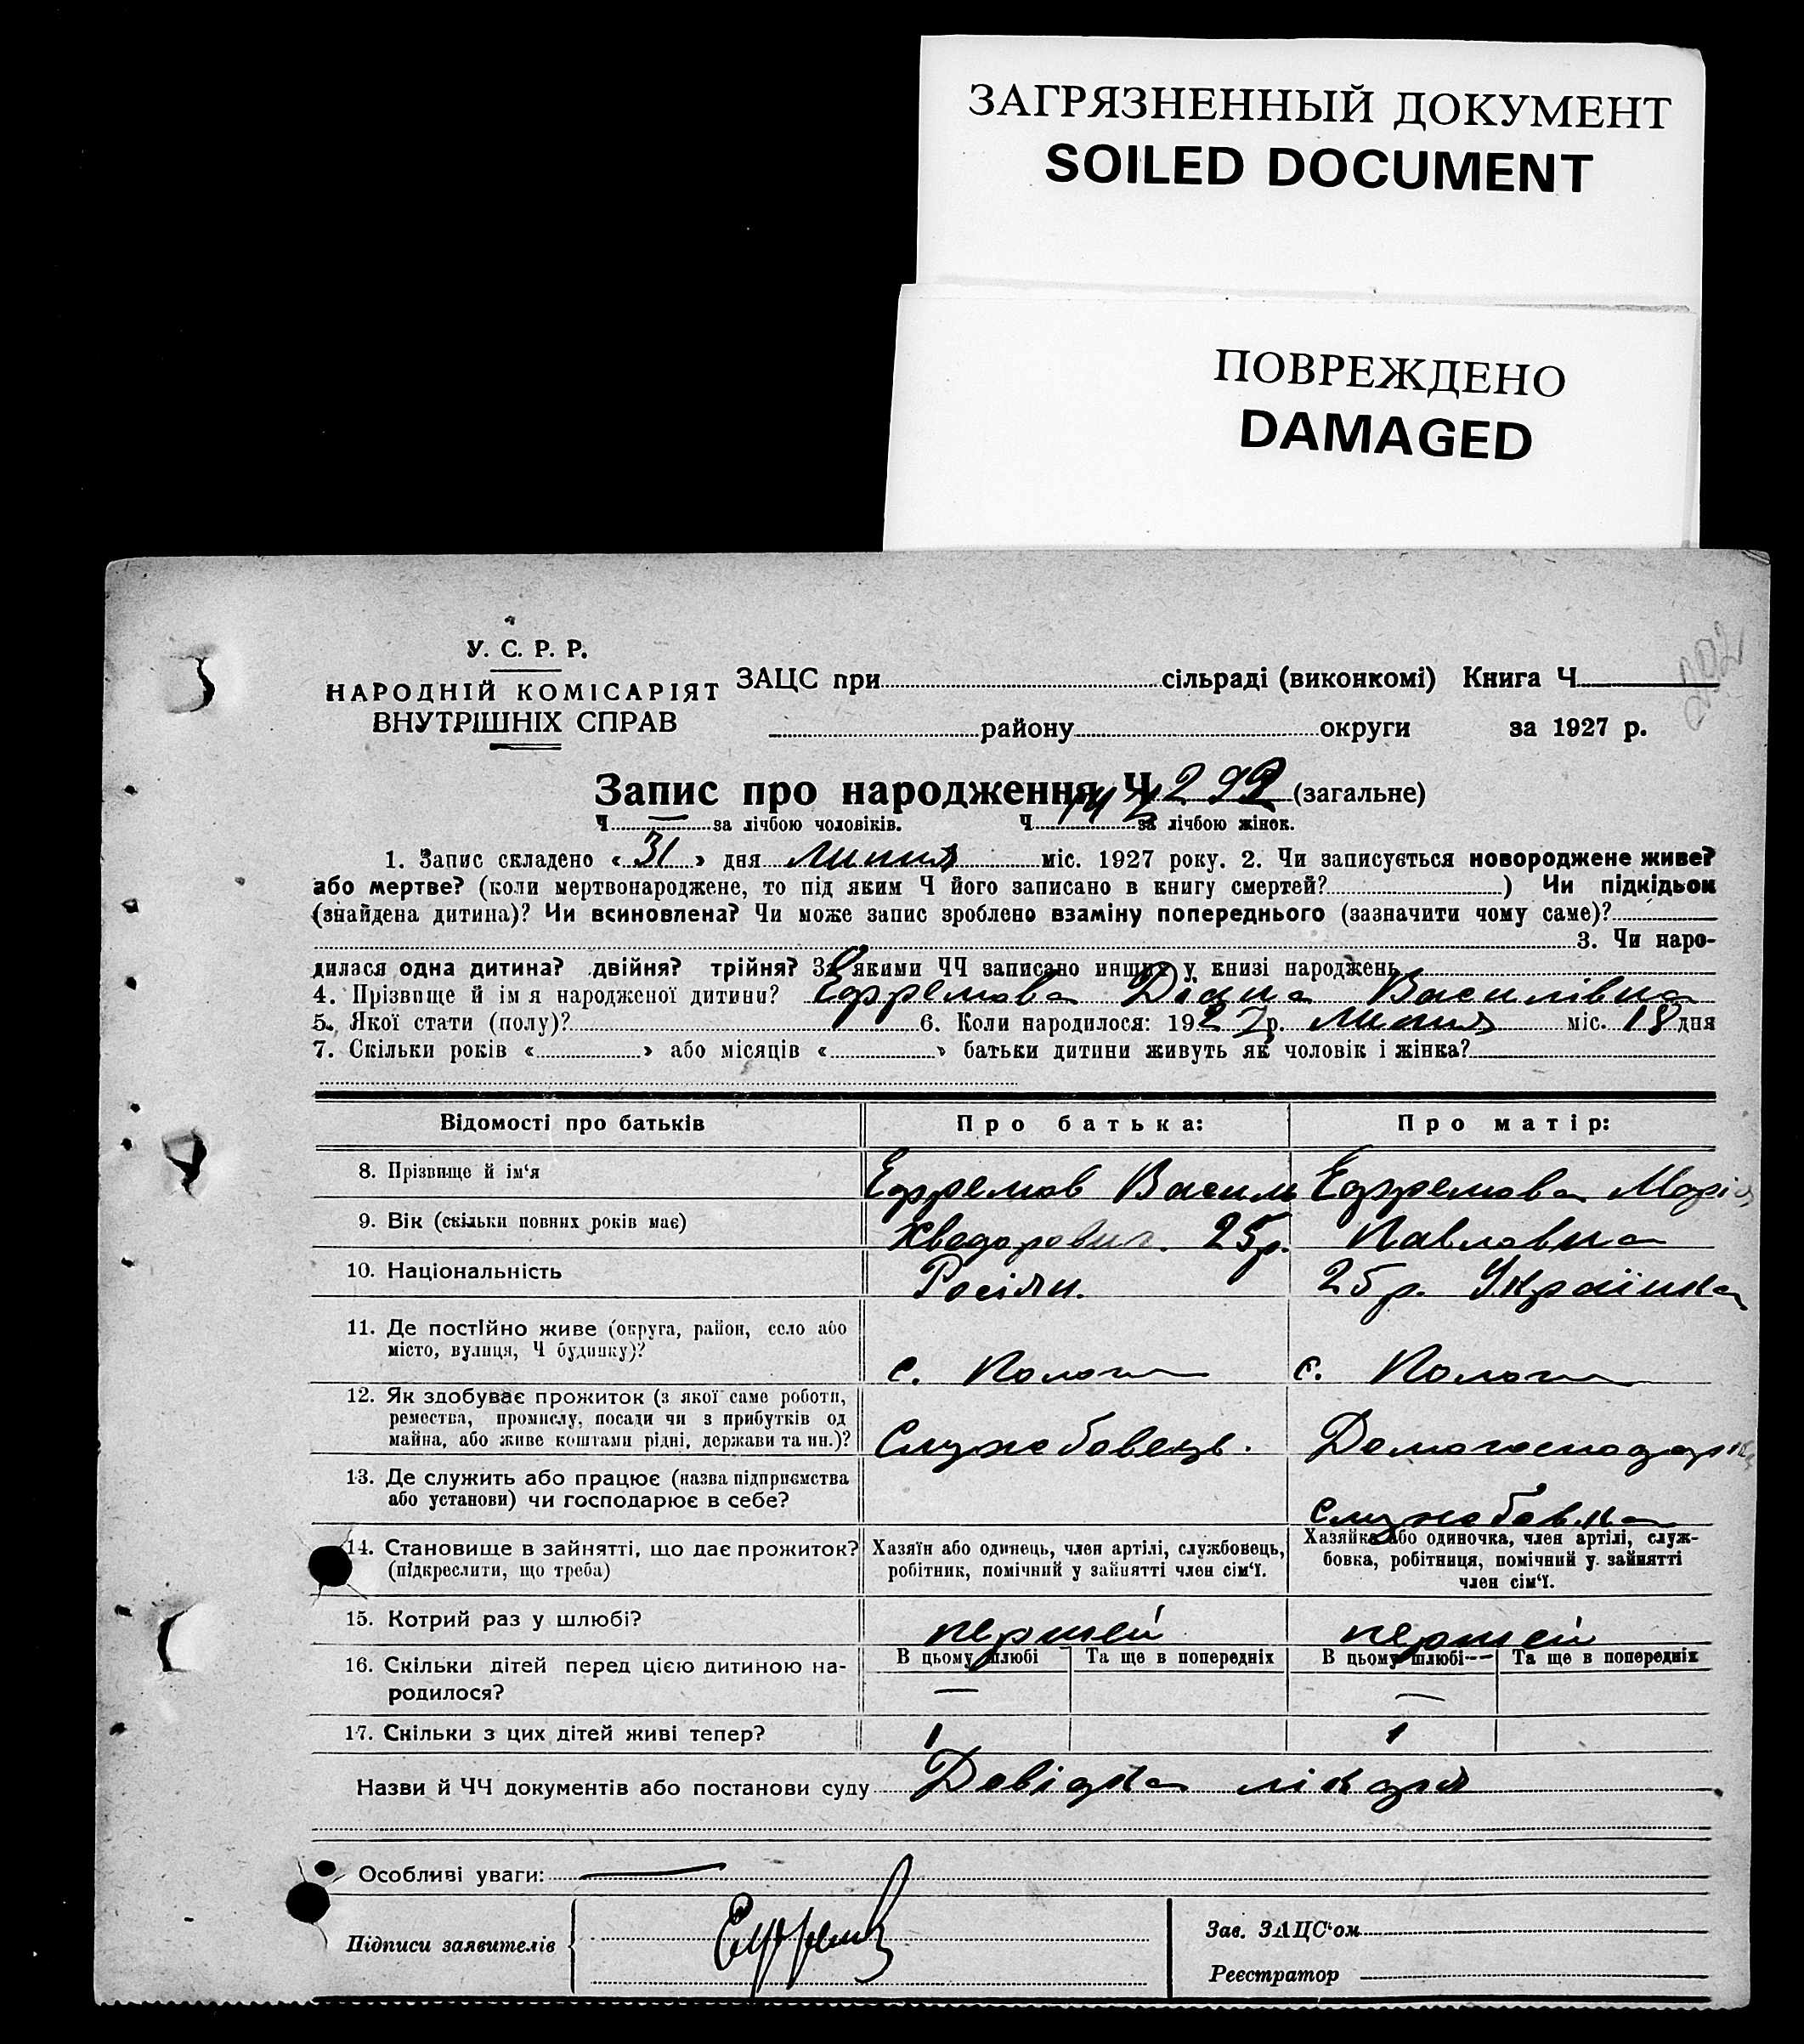 ЗАГРЯЗНЕННЫЙ ДОКУМЕНТ
SOILED DOCUMENT
ПОВРЕЖДЕНО
DAMAGED
У. С. Р. Р.
НАРОДНІЙ КОМІСАРІЯТ
ВНУТРІШНІХ СПРАВ
ЗАЦС при сільраді (виконкомі) Книга Ч.
району округи за 1927 р.
Запис про народження Ч 292 (загальне)
Ч — за лічбою чоловіків. Ч 142 за лічбою жінок.
1. Запис складено « 31 » дня Липня міс. 1927 року. 2. Чи записується новороджене живе?
або мертве? (коли мертвонароджене, то під яким Ч його записано в книгу смертей? ) Чи підкідьок
(знайдена дитина)? Чи всиновлена? Чи може запис зроблено взаміну попереднього (зазначити чому саме)?
3. Чи наро-
дилася одна дитина? двійня? трійня? За якими ЧЧ записано инших у книзі народжень
4. Прізвище й імя народженої дитини? Ефремова Діана Василівна
5. Якої стати (полу)? 6. Коли народилося: 1927 р. Липня міс. 18 дня
7. Скільки років « » або місяців « » батьки дитини живуть як чоловік і жінка?
Відомості про батьків Про батька: Про матір:
8. Прізвище й ім'я Ефремов Василь Ефремова Марія
9. Вік (скільки повних років має) Хведорович. 25р. Павловна
10. Національність Росіян. 25р. Українка
11. Де постійно живе (округа, район, село або
місто, вулиця, Ч будинку)? с. Пологи с. Пологи
12. Як здобуває прожиток (з якої саме роботи,
ремества, промислу, посади чи з прибутків од
майна, або живе коштами рідні, держави та ин.)? Службовець. Домогосподарка
13. Де служить або працює (назва підприємства
або установи) чи господарює в себе? Службовка
14. Становище в зайнятті, що дає прожиток?
(підкреслити, що треба)
Хазяїн або одинець, член артілі, службовець,
робітник, помічний у зайнятті член сім'ї.
Хазяйка або одиночка, член артілі, служ-
бовка, робітниця, помічний у зайнятті
член сім'ї.
15. Котрий раз у шлюбі? перший перший
16. Скільки дітей перед цією дитиною на-
родилося?
В цьому шлюбі Та ще в попередніх В цьому шлюбі Та ще в попередніх
— —
17. Скільки з цих дітей живі тепер? 1 1
Назви й ЧЧ документів або постанови суду Довідка лікаря
Особливі уваги: —
Підписи заявителів Ефремов
Зав. ЗАЦС'ом
Реєстратор